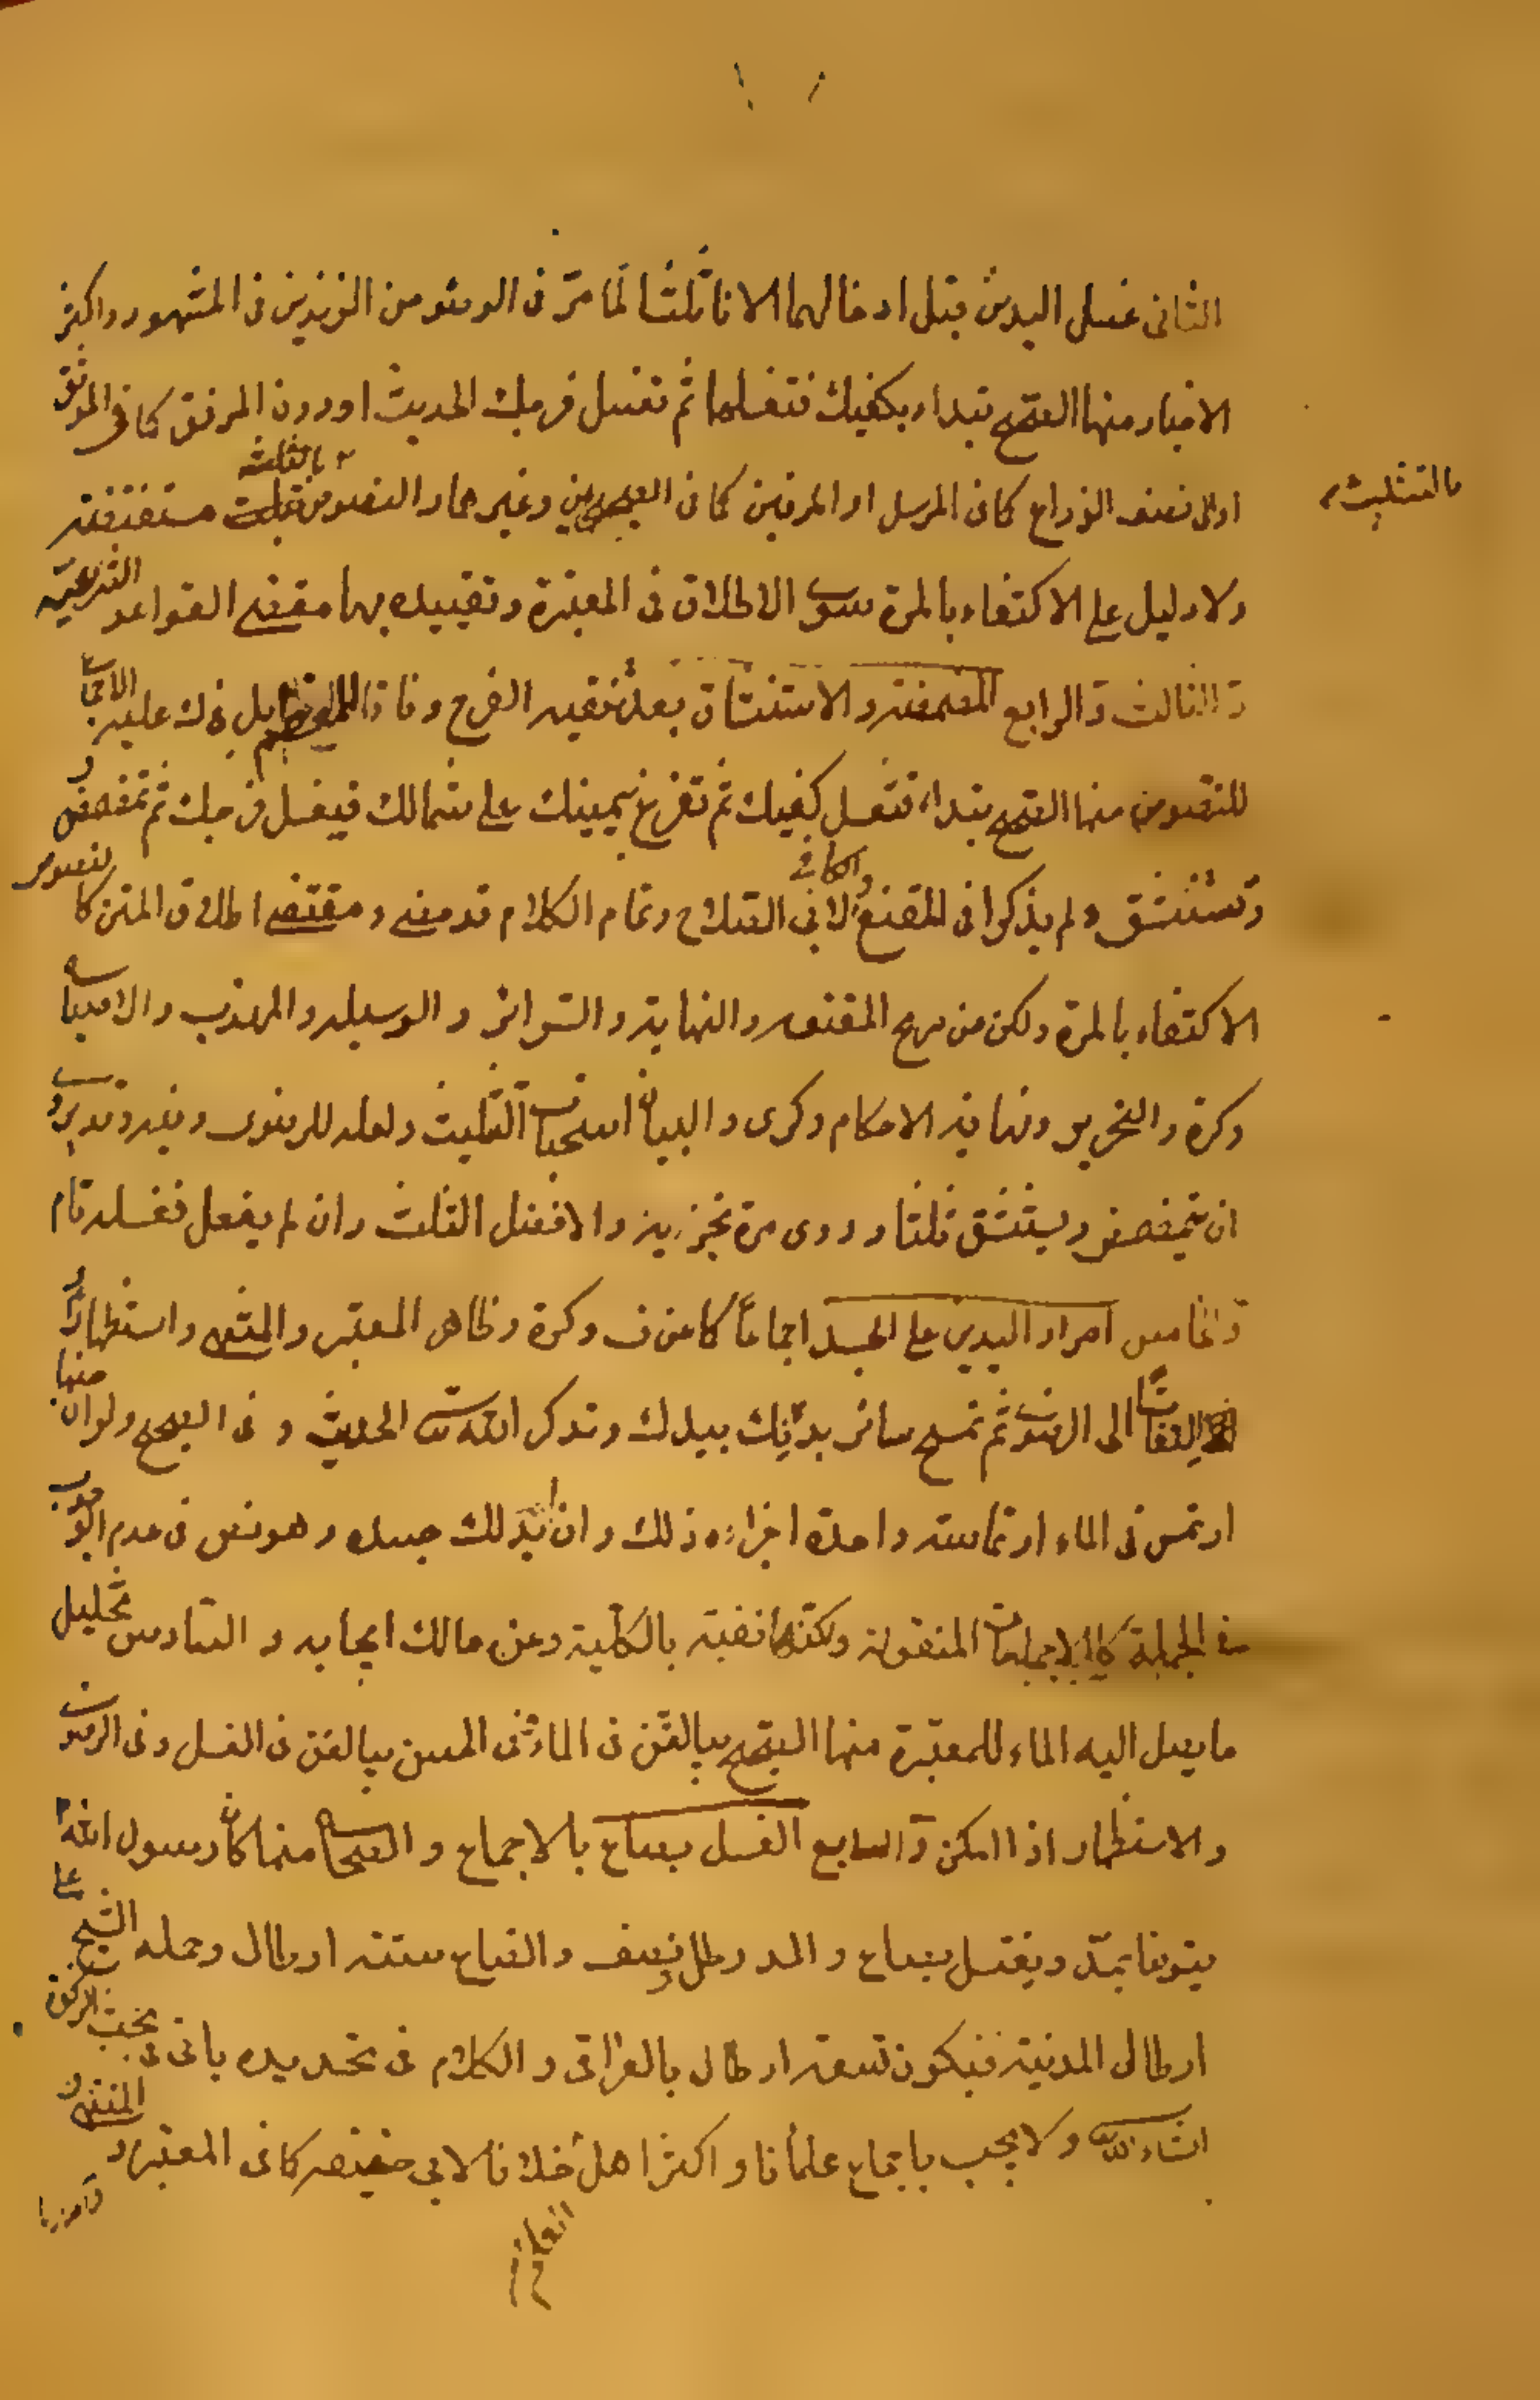 الثانى غسل اليدين قبل ادخالهما الاناء ثلثا لما مرّ فى الوضوء من الزندين فى المشهور واكثر
الاخبار منها الصحيح تبداء بكفيك فتغسلهما ثم تغسل فرجك الحديث او دون المرفق كما فى الموثق
او الى نصف الذراع كما فى المرسل او المرفقين كما فى الصحيحين وغيرهما والنصوص بالثلثة مستفيضة
بالتثليث
ولا دليل على الاكتفاء بالمرة سوى الاطلاق فى المعتبرة وتقييده بها مقتضى القواعد الشرعية
و الثالث و الرابع المضمضة والاستنشاق بعد تنقية الفرج وفاقا للمعظم بل فى ك عليه الاجماع
للنصوص منها الصحيح تبداء فتغسل كفيك ثم تفرغ بيمينك على شمالك فتغسل فرجك ثم تمضمض و
وتستنشق ولم يذكرا فى المقنع والكافى لابى الصلاح وتمام الكلام قد مضى ومقتضى اطلاق المتن كالنصوص
الاكتفاء بالمرة ولكن من صريح المقنعة والنهاية والسرائر والوسيلة والمهذب والاصباح
وكرة والتحرير ونهاية الاحكام وكرى والبيان استحباب التثليث ولعله للرضوى وفيه وقد يروى
ان يتمضمض ويستنشق ثلثا وروى مرة تجزيه والافضل الثلث وان لم يفعل فغسله تام
و الخامس امرار اليدين على الجسد اجماعا كما عن ف وكرة وظاهر المعتبر والمنتهى واستظهارا و
التفاتا الى الرضوى ثم تمسح سائر بدنك بيدك وتذكر الله تع الحديث وفى الصحيح ولو ان منها
ارتمس فى الماء ارتماسة واحدة اجزاءه ذلك وان لم يدلك جسده وهو نص فى عدم الوجوب
فى الجملة كالاجماعات المنقولة ولكنها نفته بالكلية وعن مالك ايجابه و السادس تخليل
ما يصل اليه الماء للمعتبرة منها الصحيح يبالغن فى الماء وفى الحسن يبالغن فى الغسل وفى الرضوى
والاستظهار اذا امكن و السابع الغسل بصاع بالاجماع والصحاح منها كان رسول الله
يتوضا بمدّ ويغتسل بصاع والمد رطل ونصف والصاع ستة ارطال وحمله الشيخ على
ارطال المدنية فيكون تسعة ارطال بالعراقى والكلام فى تحديده ياتى فى بحث الزكوة
انشاء الله ولا يجب باجماع علمائنا واكثر اهل خلافا لابى حنيفة كما فى المعتبر و المنتهى و
العلم